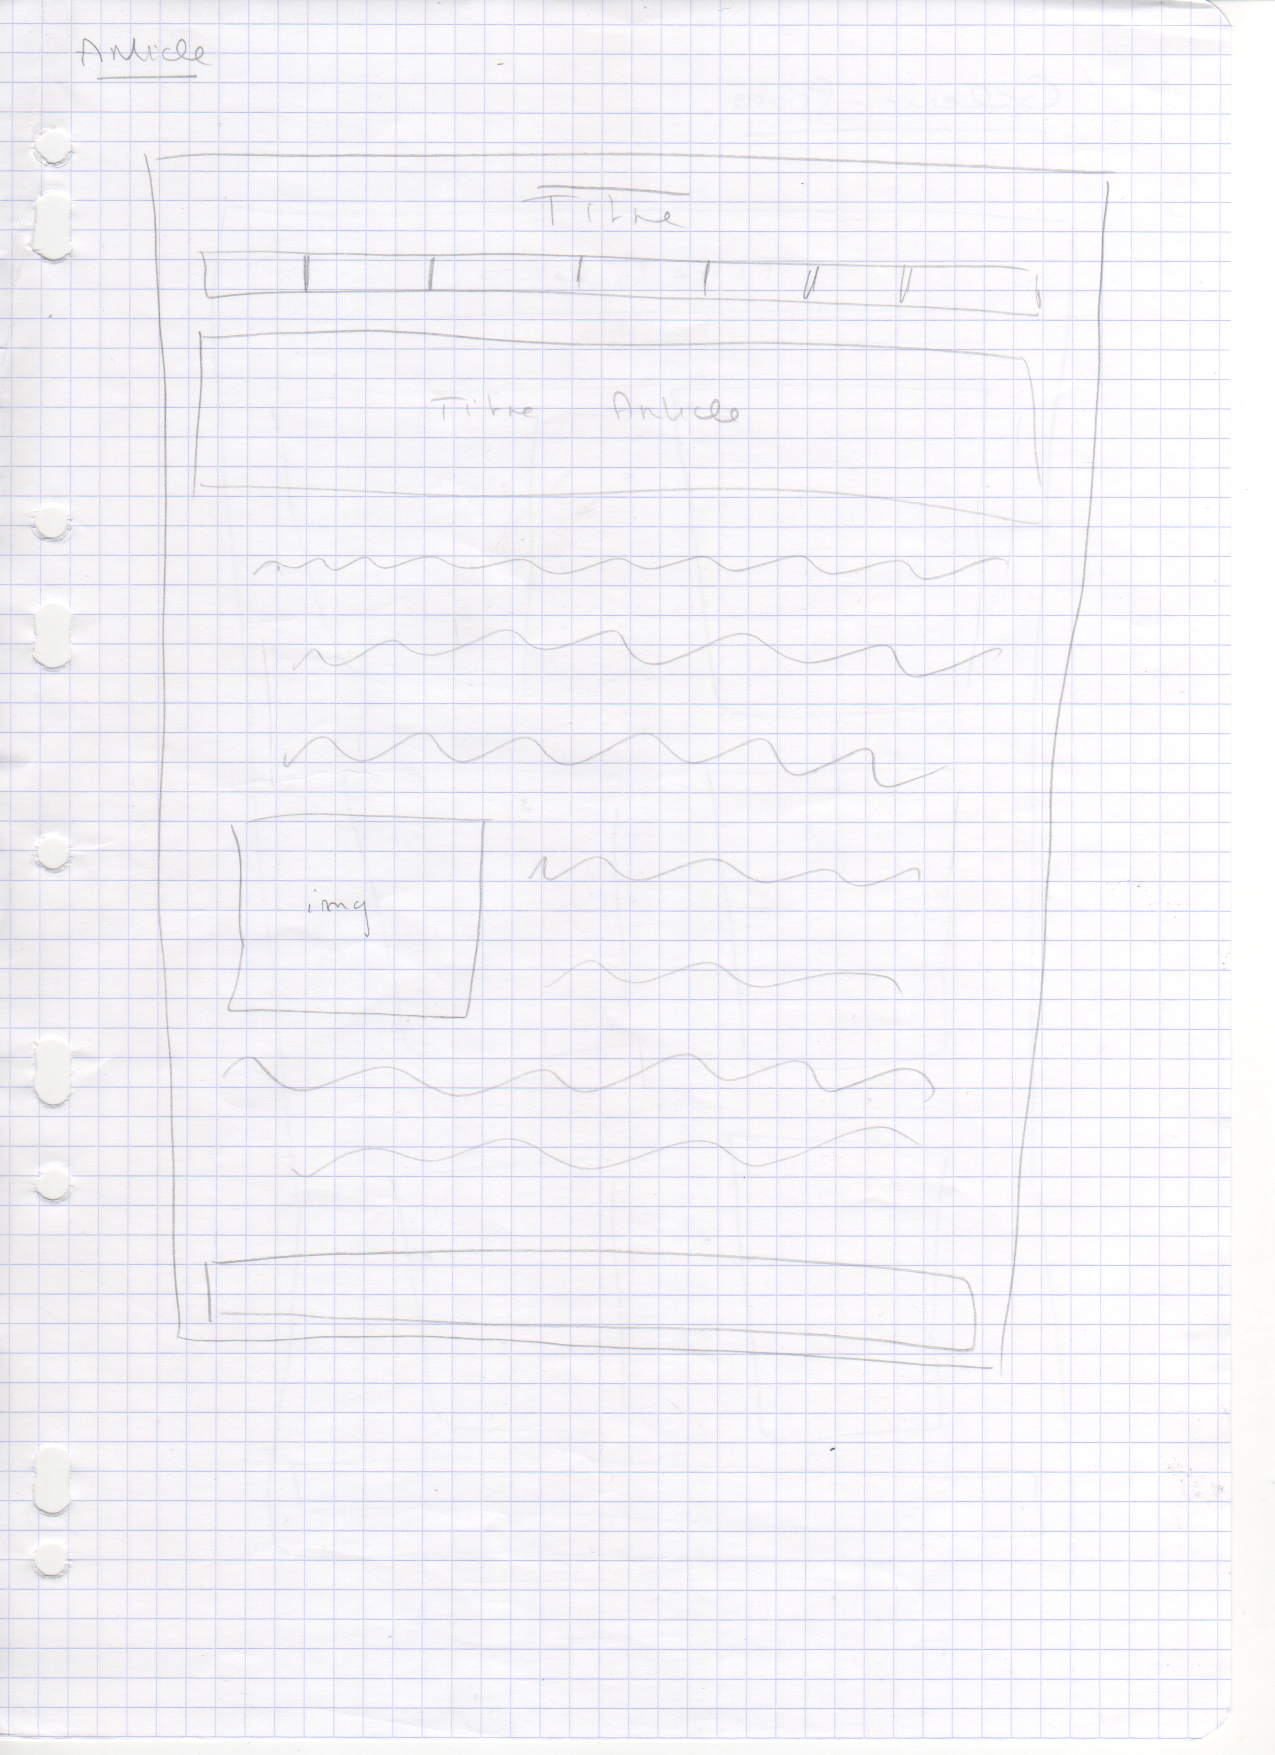 Article
Titre
Titre Article
img